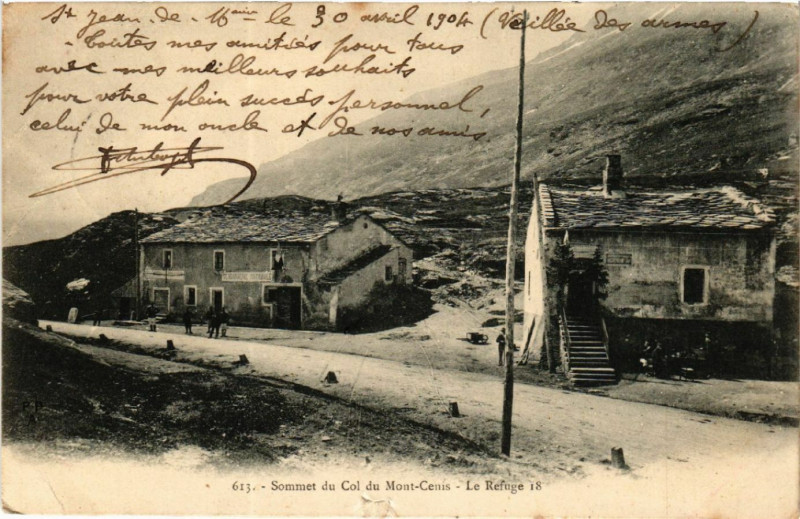 St Jean. de. Mne le 30 avril 1904 (Veillée des armes)
- toutes mes amitiés pour tous
avec mes meilleurs souhaits
pour votre plein succès personnel,
celui de mon oncle et de nos amis.
613. - Sommet du Col du Mont-Cenis - Le Refuge 18